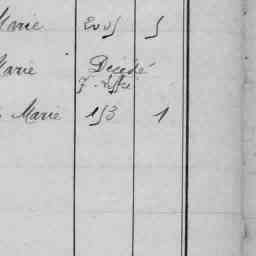 Marie 2005 5
Marie Décédé
Marie 153 1